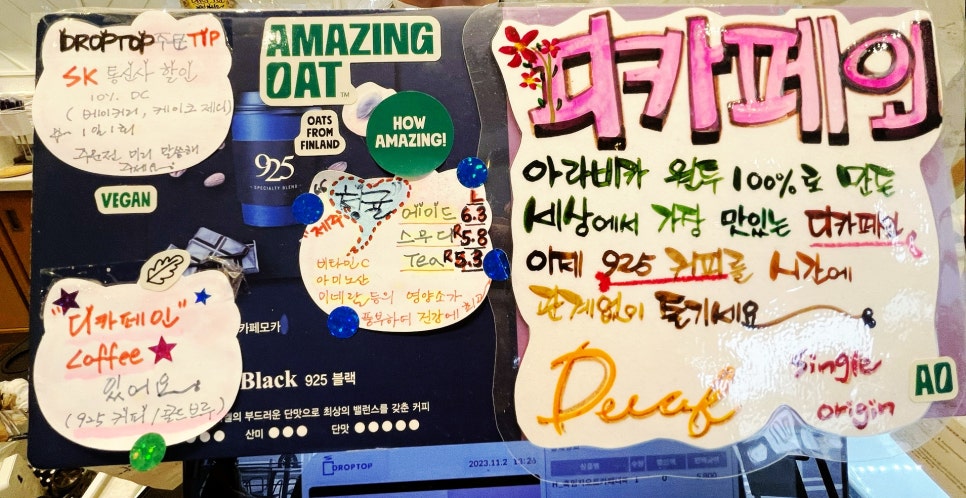 DROPTOP 주문 TIP
SK 통신사 할인
10% DC
(베이커리, 케이크 제외)
1일 1회
주문전 미리 말씀해
주세요
AMAZING
OAT™
OATS
FROM
FINLAND
HOW
AMAZING!
VEGAN
925
SPECIALTY BLEND
"제주"
에이드 L 6.3
스무디 R 5.8
Tea R 5.3
비타민C
아미노산
미네랄 등의 영양소가
풍부하며 건강에 최고
"디카페인"
Coffee
있어요
(925 커피/콜드브루)
카페모카
Black 925 블랙
의 부드러운 단맛으로 최상의 밸런스를 갖춘 커피
산미 ●●● 단맛 ●●●●●
디카페인
아라비카 원두 100%로 만든
세상에서 가장 맛있는 디카페인
이제 925 커피를 시간에
관계없이 즐기세요
Decaf
Single
origin
AO
DROPTOP 2023.11.2